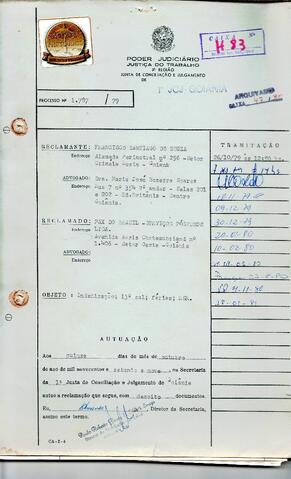 PODER JUDICIÁRIO
JUSTIÇA DO TRABALHO
3ª REGIÃO
JUNTA DE CONCILIAÇÃO E JULGAMENTO
DE
1ª JCJ-GOIANIA
CAIXA
H.83
ARQUIVADO
CAIXA
PROCESSO Nº 1.787 / 79
RECLAMANTE: FRANCISCO SANTIAGO DE SOUZA
Endereço: Alameda Perimetral nº 256 -Setor
Oeste - Goiânia
ADVOGADO: Dra. Maria José Soares
Endereço: Rua 7 nº 354 2º andar - Salas 201
e 202 - Ed.Britânia - Centro
Goiânia.
RECLAMADO: PAX DO BRASIL -SERVIÇOS PÓSTUMOS
LTDA.
Endereço: Avenida Assis Chateaubriand nº
1.406 - Setor Oeste - Goiânia
ADVOGADO:
Endereço:
OBJETO: Indenização; 13º sal; férias; RSR.
TRAMITAÇÃO
26/10/79
30-12-79
10-02-80
AUTUAÇÃO
Aos quinze dias do mês de outubro
do ano de mil novecentos e setenta e nove, na Secretaria
da 1ª Junta de Conciliação e Julgamento de Goiânia
autuo a reclamação que segue, com dezoito documentos.
Eu, Diretor da Secretaria,
assino este termo.
CA-I-4